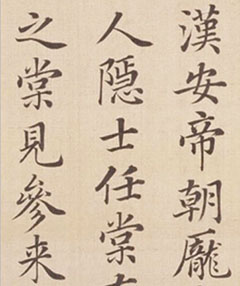 漢安帝朝龐
人隱士任棠
之棠見參来